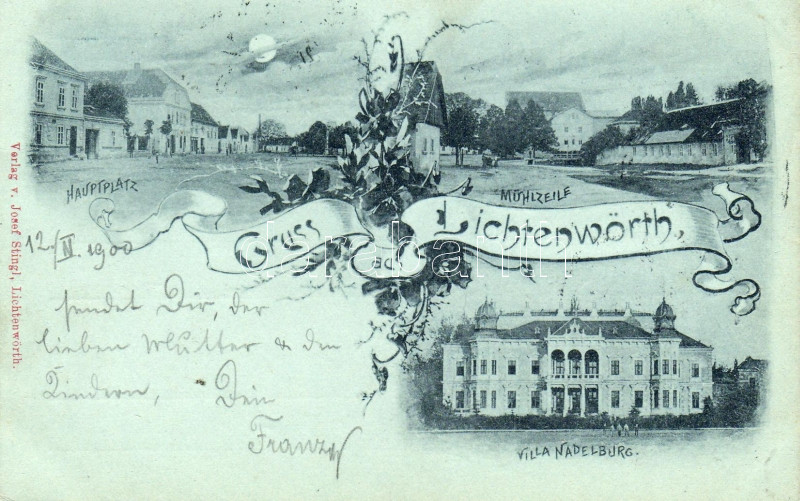 HAUPTPLATZ
MÜHLZEILE
Gruss
aus
Lichtenwörth.
12./II. 1900
sendet Dir, der
lieben Mutter & den
Kindern, Dein
Franz
VILLA NADELBURG.
Verlag v. Josef Stingl, Lichtenwörth.
darabanth